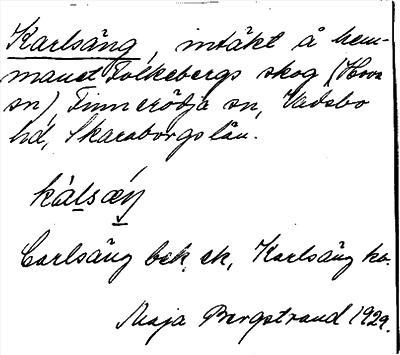 Karlsäng, intäkt å hem-
manet Folkebergs skog (Hova
sn), Finnerödja sn, Vadsbo
hd, Skaraborgs län.
Carlsäng bek. ek, Karlsäng ka.
Maja Bergstrand 1929.